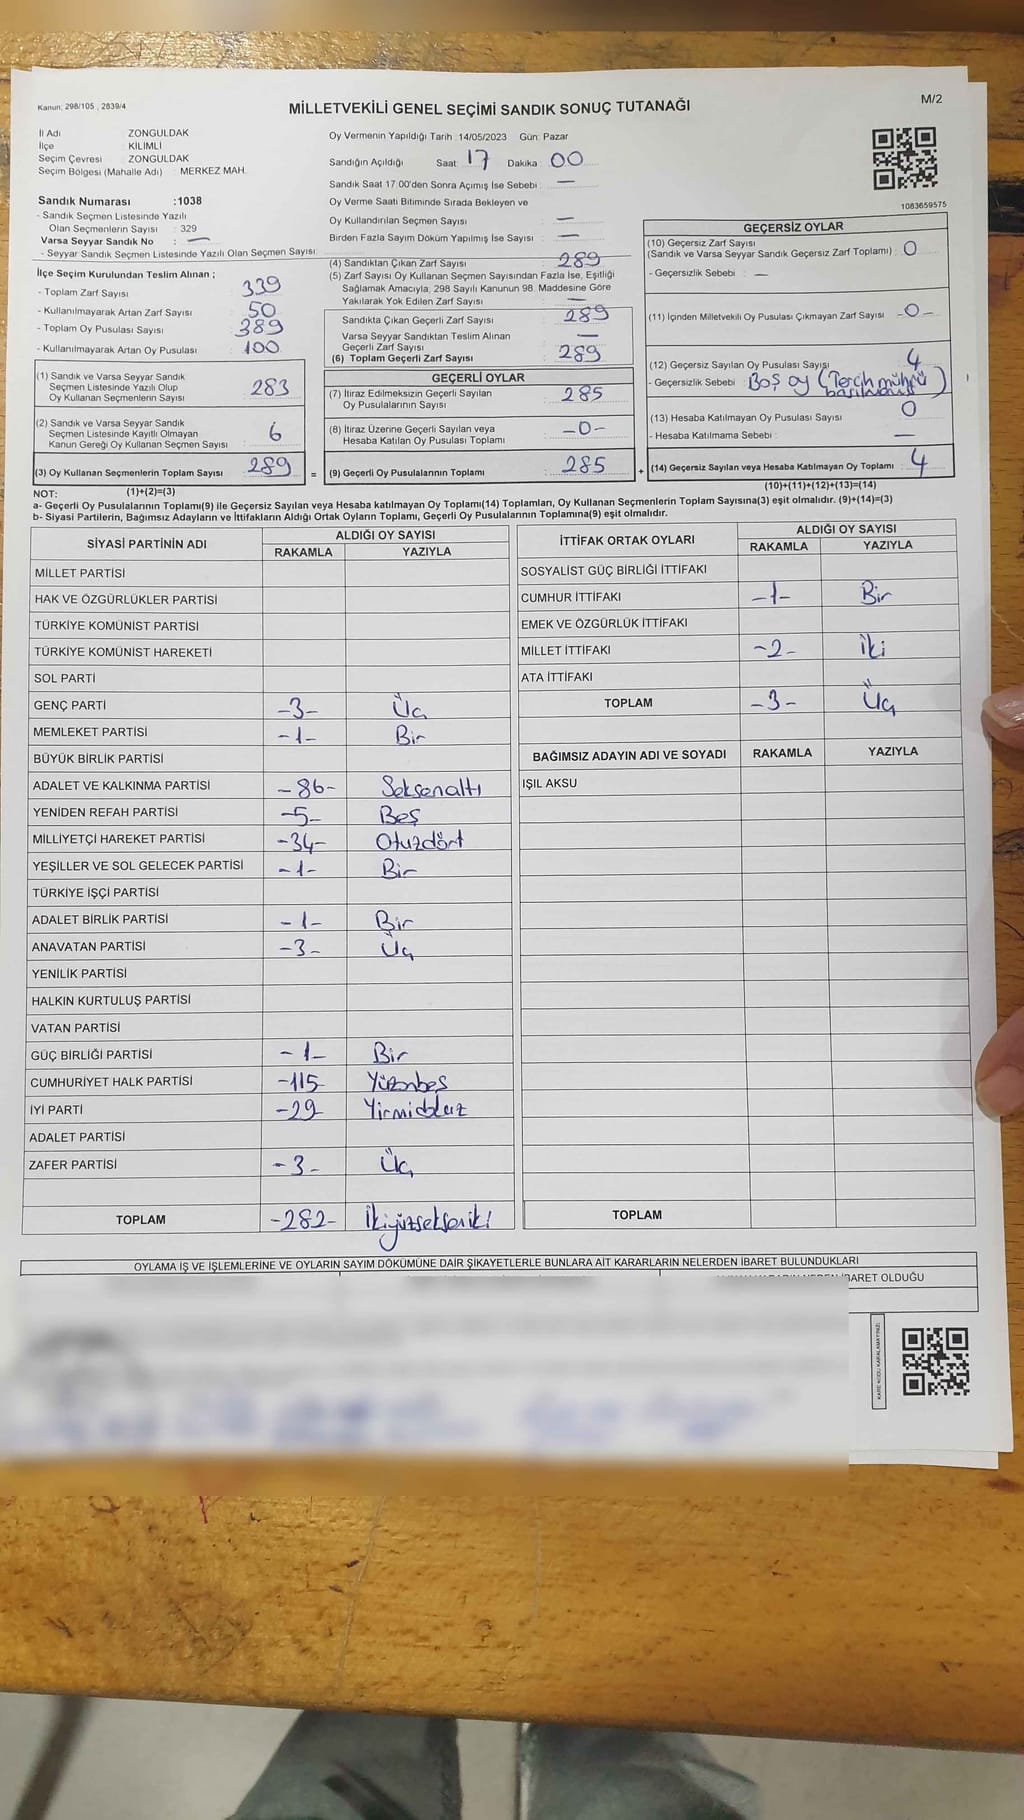 Kanun: 298/105 , 2839/4
MİLLETVEKİLİ GENEL SEÇİMİ SANDIK SONUÇ TUTANAĞI
M/2
İl Adı ZONGULDAK
İlçe : KİLİMLİ
Seçim Çevresi ZONGULDAK
Seçim Bölgesi (Mahalle Adı) : MERKEZ MAH.
Sandık Numarası :1038
- Sandık Seçmen Listesinde Yazılı
Olan Seçmenlerin Sayısı : 329
Varsa Seyyar Sandık No : —
- Seyyar Sandık Seçmen Listesinde Yazılı Olan Seçmen Sayısı:
İlçe Seçim Kurulundan Teslim Alınan ;
- Toplam Zarf Sayısı 339
- Kullanılmayarak Artan Zarf Sayısı : 50
- Toplam Oy Pusulası Sayısı : 389
- Kullanılmayarak Artan Oy Pusulası : 100
(1) Sandık ve Varsa Seyyar Sandık
Seçmen Listesinde Yazılı Olup
Oy Kullanan Seçmenlerin Sayısı : 283
(2) Sandık ve Varsa Seyyar Sandık
Seçmen Listesinde Kayıtlı Olmayan
Kanun Gereği Oy Kullanan Seçmen Sayısı : 6
(3) Oy Kullanan Seçmenlerin Toplam Sayısı : 289
Oy Vermenin Yapıldığı Tarih : 14/05/2023 Gün: Pazar
Sandığın Açıldığı Saat: 17 Dakika : 00
Sandık Saat 17:00'den Sonra Açılmış İse Sebebi : —
Oy Verme Saati Bitiminde Sırada Bekleyen ve
Oy Kullandırılan Seçmen Sayısı : —
Birden Fazla Sayım Döküm Yapılmış İse Sayısı : —
(4) Sandıktan Çıkan Zarf Sayısı : 289
(5) Zarf Sayısı Oy Kullanan Seçmen Sayısından Fazla İse, Eşitliği
Sağlamak Amacıyla, 298 Sayılı Kanunun 98. Maddesine Göre
Yakılarak Yok Edilen Zarf Sayısı : —
Sandıkta Çıkan Geçerli Zarf Sayısı : 289
Varsa Seyyar Sandıktan Teslim Alınan
Geçerli Zarf Sayısı : —
(6) Toplam Geçerli Zarf Sayısı : 289
GEÇERLİ OYLAR
(7) İtiraz Edilmeksizin Geçerli Sayılan
Oy Pusulalarının Sayısı : 285
(8) İtiraz Üzerine Geçerli Sayılan veya
Hesaba Katılan Oy Pusulası Toplamı : -0-
= (9) Geçerli Oy Pusulalarının Toplamı : 285
1083659575
GEÇERSİZ OYLAR
(10) Geçersiz Zarf Sayısı
(Sandık ve Varsa Seyyar Sandık Geçersiz Zarf Toplamı) : 0
- Geçersizlik Sebebi : —
(11) İçinden Milletvekili Oy Pusulası Çıkmayan Zarf Sayısı -0-
(12) Geçersiz Sayılan Oy Pusulası Sayısı : 4
- Geçersizlik Sebebi : Boş oy (Tercih mührü basılmamış)
(13) Hesaba Katılmayan Oy Pusulası Sayısı : 0
- Hesaba Katılmama Sebebi : —
+ (14) Geçersiz Sayılan veya Hesaba Katılmayan Oy Toplamı : 4
NOT: (1)+(2)=(3)
(10)+(11)+(12)+(13)=(14)
a- Geçerli Oy Pusulalarının Toplamı(9) ile Geçersiz Sayılan veya Hesaba katılmayan Oy Toplamı(14) Toplamları, Oy Kullanan Seçmenlerin Toplam Sayısına(3) eşit olmalıdır. (9)+(14)=(3)
b- Siyasi Partilerin, Bağımsız Adayların ve İttifakların Aldığı Ortak Oyların Toplamı, Geçerli Oy Pusulalarının Toplamına(9) eşit olmalıdır.
SİYASİ PARTİNİN ADI ALDIĞI OY SAYISI
RAKAMLA YAZIYLA
MİLLET PARTİSİ
HAK VE ÖZGÜRLÜKLER PARTİSİ
TÜRKİYE KOMÜNİST PARTİSİ
TÜRKİYE KOMÜNİST HAREKETİ
SOL PARTİ
GENÇ PARTİ -3- Üç
MEMLEKET PARTİSİ -1- Bir
BÜYÜK BİRLİK PARTİSİ
ADALET VE KALKINMA PARTİSİ -86- Seksenaltı
YENİDEN REFAH PARTİSİ -5- Beş
MİLLİYETÇİ HAREKET PARTİSİ -34- Otuzdört
YEŞİLLER VE SOL GELECEK PARTİSİ -1- Bir
TÜRKİYE İŞÇİ PARTİSİ
ADALET BİRLİK PARTİSİ -1- Bir
ANAVATAN PARTİSİ -3- Üç
YENİLİK PARTİSİ
HALKIN KURTULUŞ PARTİSİ
VATAN PARTİSİ
GÜÇ BİRLİĞİ PARTİSİ -1- Bir
CUMHURİYET HALK PARTİSİ -115 Yüzonbeş
İYİ PARTİ -29 Yirmidokuz
ADALET PARTİSİ
ZAFER PARTİSİ -3- Üç
TOPLAM -282- İkiyüzsekseniki
İTTİFAK ORTAK OYLARI ALDIĞI OY SAYISI
RAKAMLA YAZIYLA
SOSYALİST GÜÇ BİRLİĞİ İTTİFAKI
CUMHUR İTTİFAKI -1- Bir
EMEK VE ÖZGÜRLÜK İTTİFAKI
MİLLET İTTİFAKI -2- İki
ATA İTTİFAKI
TOPLAM -3- Üç
BAĞIMSIZ ADAYIN ADI VE SOYADI RAKAMLA YAZIYLA
IŞIL AKSU
TOPLAM
OYLAMA İŞ VE İŞLEMLERİNE VE OYLARIN SAYIM DÖKÜMÜNE DAİR ŞİKAYETLERLE BUNLARA AİT KARARLARIN NELERDEN İBARET BULUNDUKLARI
İBARET OLDUĞU